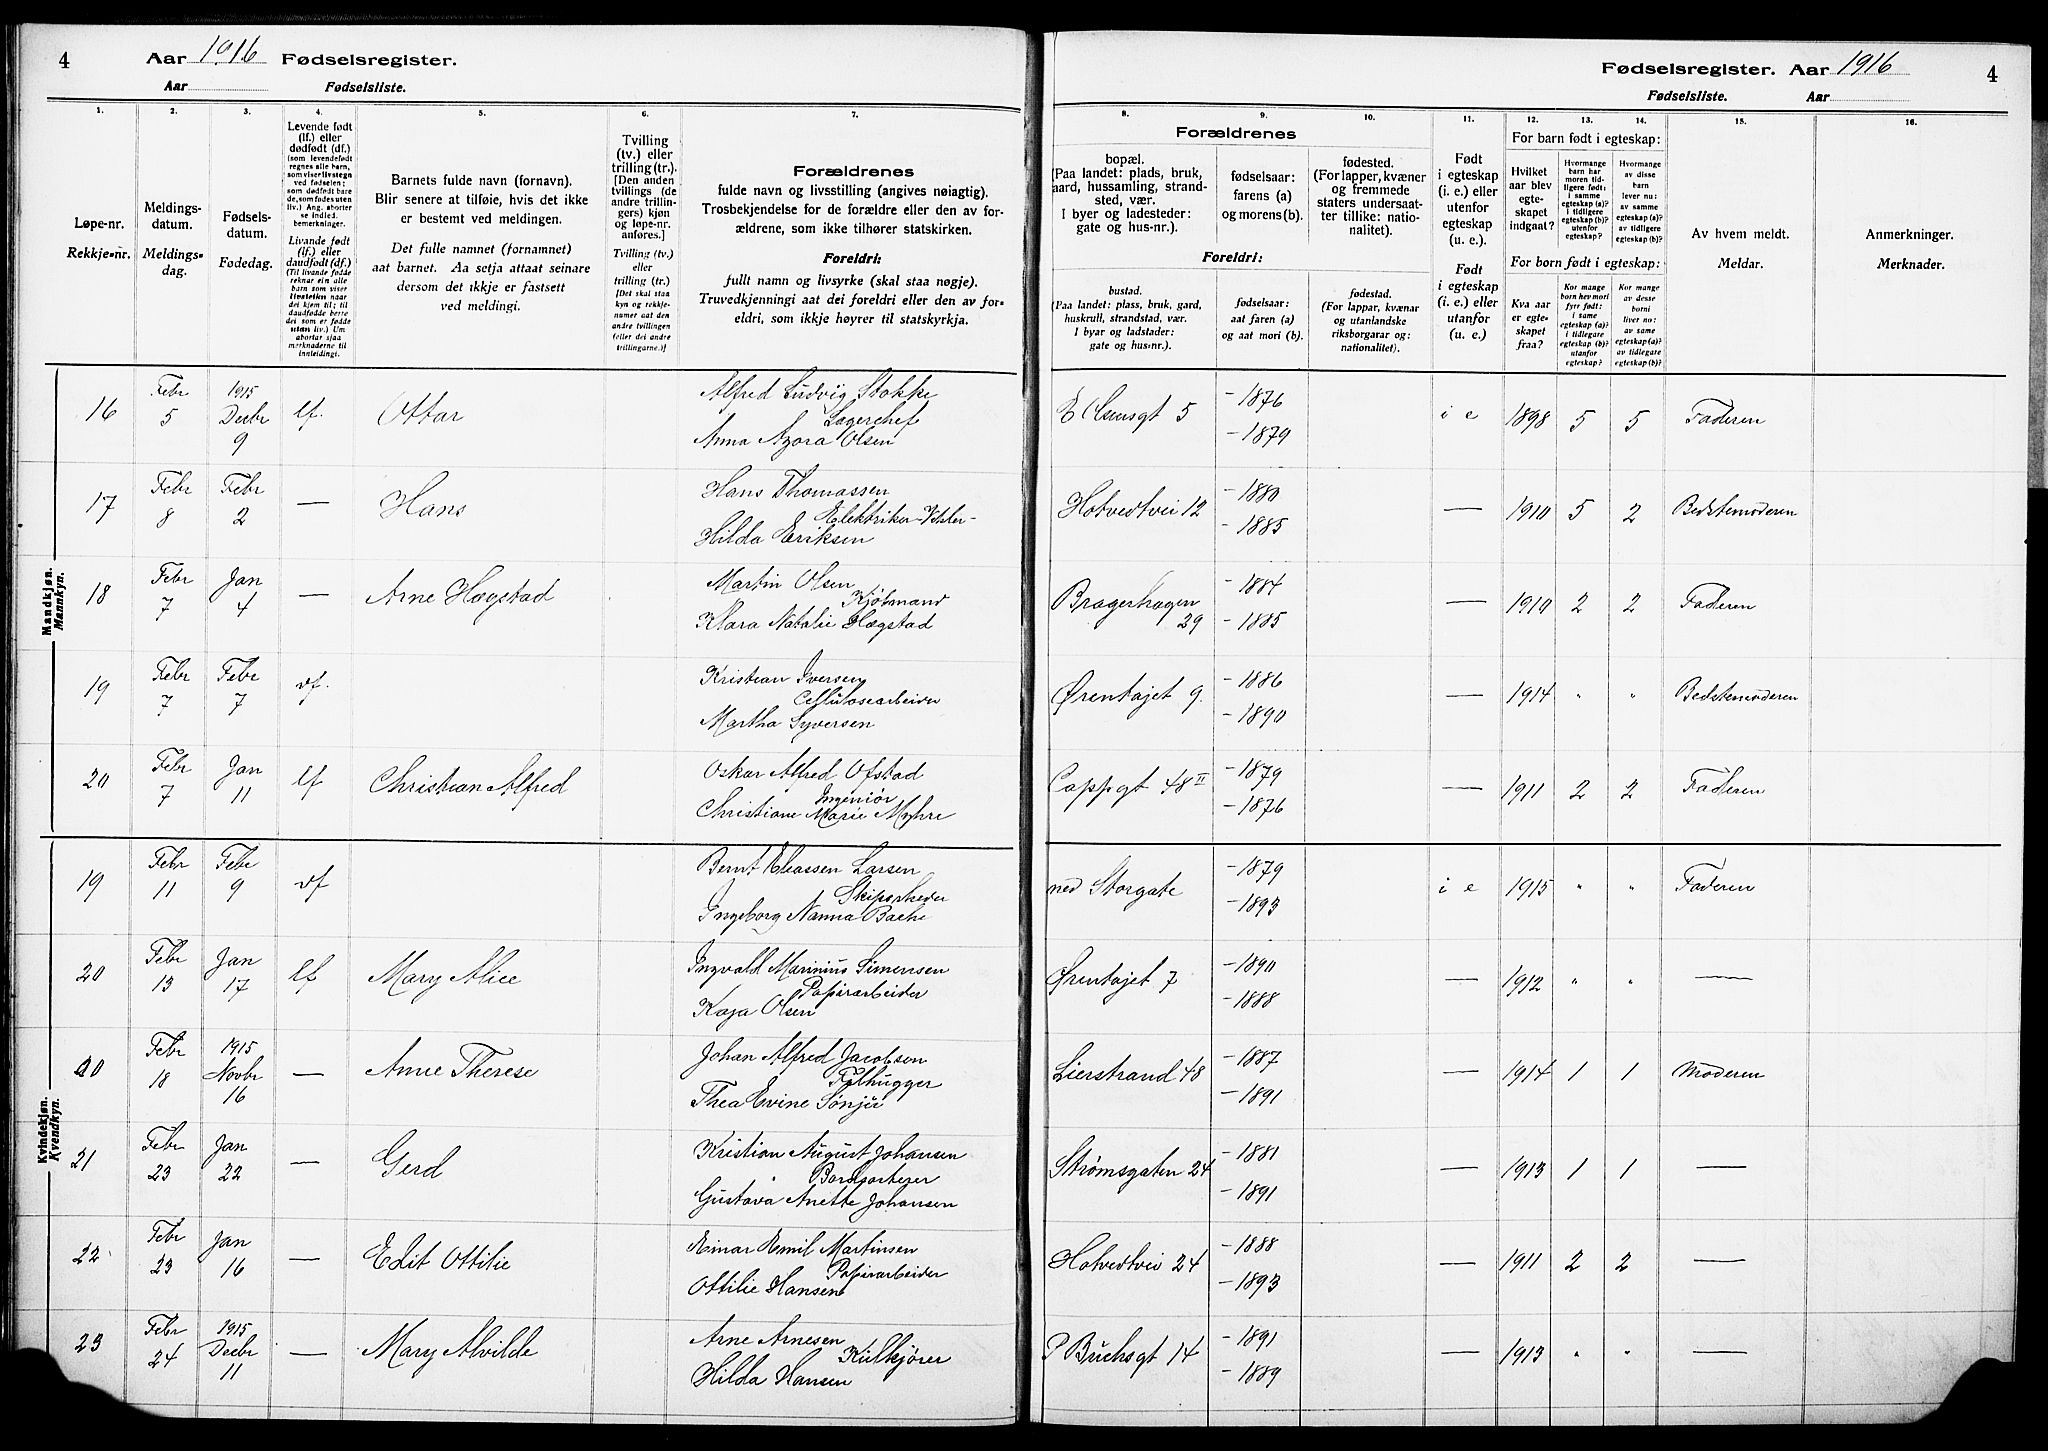 4 Aar 1916 Fødselsregister.
Aar Fødselsliste.
Fødselsregister. Aar 1916 4
Fødselsliste. Aar
1. 2. 3. 4. 5. 6. 7.
8. 9. 10. 11. 12. 13. 14. 15. 16.
Løpe-nr.
Rekkje-nr.
Meldings-
datum.
Meldings-
dag.
Fødsels-
datum.
Fødedag.
Levende født
(lf.) eller
dødfødt (df.)
(som levendefødt
regnes alle barn,
som viser livstegn
ved fødselen;
som dødfødt bare
de, som fødes uten
liv.) Ang. aborter
se indled.
bemerkninger.
Livande født
(lf.) eller
daudfødt (df.)
(Til livande fødde
reknar ein alle
born som viser
livsteikn naar
dei kjem til; til
daudfødde berre
dei som er fødde
utan liv.) Um
abortar sjaa
merknaderne til
innleidingi.
Barnets fulde navn (fornavn).
Blir senere at tilføie, hvis det ikke
er bestemt ved meldingen.
Det fulle namnet (fornamnet)
aat barnet. Aa setja attaat seinare
dersom det ikkje er fastsett
ved meldingi.
Tvilling
(tv.) eller
trilling (tr.).
[Den anden
tvillings (de
andre trillin-
gers) kjøn
og løpe-nr.
anføres.]
Tvilling (tv.)
eller
trilling (tr.)
[Det skal staa
kyn og rekkje-
numer aat den
andre tvillingen
(eller dei andre
trillingarne.)]
Forældrenes
fulde navn og livsstilling (angives nøiagtig).
Trosbekjendelse for de forældre eller den av for-
ældrene, som ikke tilhører statskirken.
Foreldri:
fullt namn og livsyrke (skal staa nøgje).
Truvedkjenningi aat dei foreldri eller den av for-
eldri, som ikkje høyrer til statskyrkja.
Forældrenes
bopæl.
(Paa landet: plads, bruk,
gaard, hussamling, strand-
sted, vær.
I byer og ladesteder:
gate og hus-nr.).
fødselsaar:
farens (a)
og morens (b).
fødested.
(For lapper, kvæner
og fremmede
staters undersaat-
ter tillike: natio-
nalitet).
Foreldri:
bustad.
(Paa landet: plass, bruk, gard,
huskrull, strandstad, vær.
I byar og ladstader:
gate og hus-nr.).
fødselsaar:
aat faren (a)
og aat mori (b).
fødestad.
(For lappar, kvænar
og utanlandske
riksborgarar og:
nationalitet).
Født
i egteskap
(i. e.) eller
utenfor
egteskap
(u. e.).
Født
i egteskap
(i. e.) eller
utanfor
(u. e.).
For barn født i egteskap:
Hvilket
aar blev
egte-
skapet
indgaat?
Hvormange
barn har
moren tid-
ligere født:
i samme
egteskap (a)?
i tidligere
egteskap (b)?
utenfor
egteskap?
Hvormange
av disse
barn
lever nu:
av samme
egteskap (a)?
av tidligere
egteskap (b)?
For born født i egteskap:
Kva aar
er egte-
skapet
fraa?
Kor mange
born hev mori
fyrr født:
i same
egteskap (a)?
i tidlegare
egteskap (b)?
utanfor
egteskap?
Kor mange
av desse
borni
liver no:
av same
egteskap (a)?
av tidlegare
egteskap (b)?
Av hvem meldt.
Meldar.
Anmerkninger.
Merknader.
Mandkjøn.
Mannkyn.
16 Febr 5 1915 Decbr 9 lf. Ottar Alfred Ludvig Stokke Lagerchef Anna Azora Olsen
17 Febr 8 Febr 2 — Hans Hans Thomassen Hilda Eriksen
18 Febr 7 Jan 4 — Arne Hægstad Martin Olsen Kjøbmand Klara Natalie Hægstad
19 Febr 7 Febr 7 df. Kristian Iversen Cellulosearbeider Martha Syversen
20 Febr 7 Jan 11 lf Christian Alfred Oskar Alfred Ofstad Ingeniør Christiane Marie Myhre
Kvindekjøn.
Kvendkyn.
19 Febr 11 Febr 9 df Bernt Eliassen Larsen Skipsrheder Ingeborg Nanna Bache
20 Febr 13 Jan 17 lf Mary Alice Ingvald Marinius Simensen Papirarbeider Kaja Olsen
20 Febr 18 1915 Novbr 16 — Anne Therese Johan Alfred Jacobsen Filhugger Thea Evine
21 Febr 23 Jan 22 — Gerd Kristian August Johansen Gustava Anette Johansen
22 Febr 23 Jan 16 — Edit Ottilie Einar Emil Martinsen Papirarbeider Ottilie Hansen
23 Febr 24 1915 Decbr 11 — Mary Alvilde Arne Arnesen Kulkjører Hilda Hansen
5 -1876 -1879 i e 1898 5 5 Faderen
Hotvedtvei 12 -1880 -1885 — 1910 5 2 Bedstemoderen
Bragerhagen 29 -1884 -1885 — 1910 2 2 Faderen
Ørentajet 9. -1886 -1890 — 1914 " " Bedstemoderen
Cappgt 48 II -1879 -1876 — 1911 2 2 Faderen
ned Storgate -1879 -1893 i e 1915 " " Faderen
Ørentajet 7 -1890 -1888 — 1912 " " —
Lierstrand 48 -1887 -1891 — 1914 1 1 Moderen
Strømsgaten 24 -1881 -1891 — 1913 1 1 —
Hotvedtvei 24 -1888 -1893 — 1911 2 2 —
P Buchsgt 14 -1891 -1889 — 1913 " " —